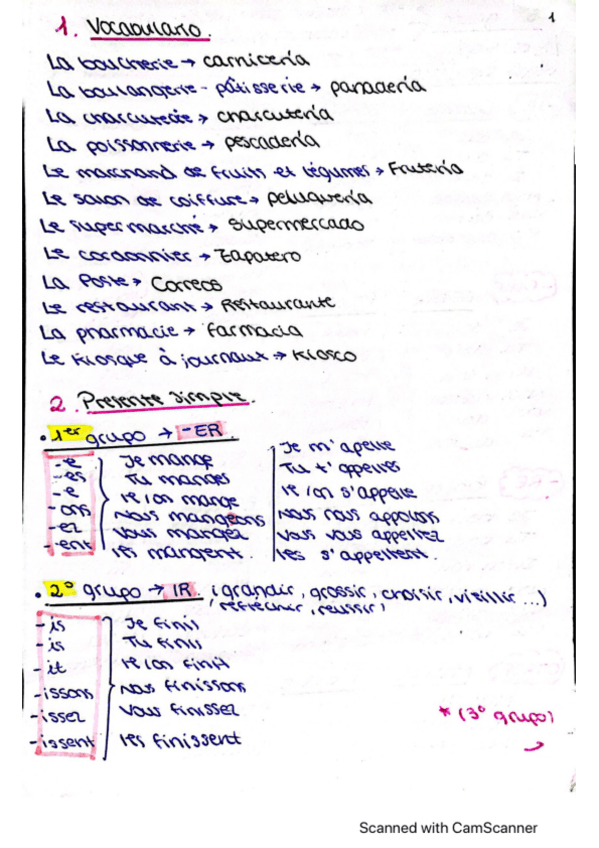 1
1. Vocabulario.
La boucherie → carnicería
La boulangerie - pâtisserie → panadería
La charcuterie → charcutería
La poissonnerie → pescadería
Le marchand de fruits et légumes → Frutería
Le salon de coiffure → peluquería
Le supermarché → Supermercado
Le cordonnier → Zapatero
La Poste → Correos
Le restaurant → Restaurante
La pharmacie → farmacia
Le kiosque à journaux → kiosco
2. Presente simple.
• 1er grupo → -ER
-e Je mange
-es Tu manges
-e Il/on mange
-ons Nous mangeons
-ez Vous mangez
-ent Ils mangent.
Je m'apelle
Tu t'appelles
Il/on s'appelle
Nous nous appelons
Vous vous appellez
Ils s'appellent.
• 2º grupo → IR (grandir, grossir, choisir, vieillir ...)
réfléchir, réussir,
-is Je finis
-is Tu finis
-it Il/on finit
-issons Nous finissons
-issez Vous finissez
-issent Ils finissent
* (3º grupo)
Scanned with CamScanner